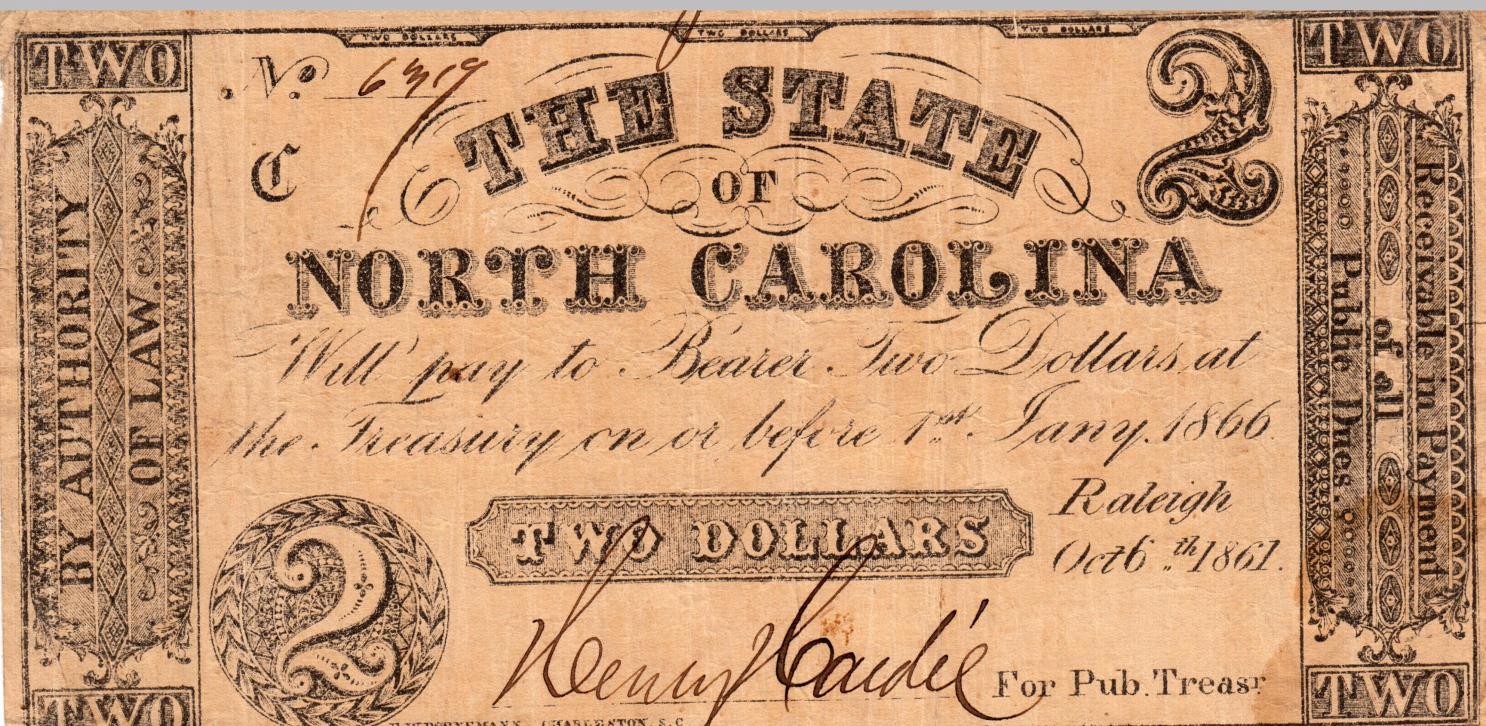 TWO
TWO DOLLARS
TWO DOLLARS
TWO DOLLARS
TWO
No. 6319
2
C
THE STATE
OF
NORTH CAROLINA
Will pay to Bearer Two Dollars at
the Treasury on or before 1st. Jany. 1866.
BY AUTHORITY
OF LAW.
Receivable in Payment
of all
Public Dues.
Raleigh
Oct 6th 1861.
TWO DOLLARS
2
Henry Hardie
For Pub. Treasr
TWO
CHARLESTON, S.C.
TWO